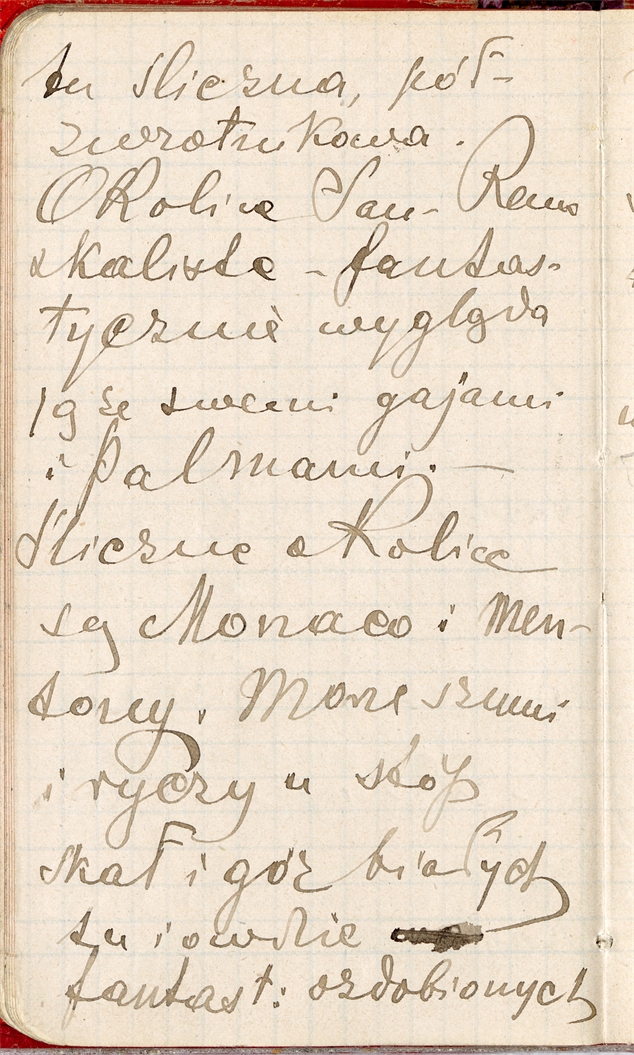 tu śliczna, pół-
zwrotnikowa.
Okolice San-Remo
skaliste - fantas-
tycznie wygląda
ją ze swemi gajami
i palmami. —
Śliczne okolice
są Monaco i Men-
tony. Morze szumi
i ryczy u stóp
skał i gór białych
tu i owdzie
fantast: ozdobionych